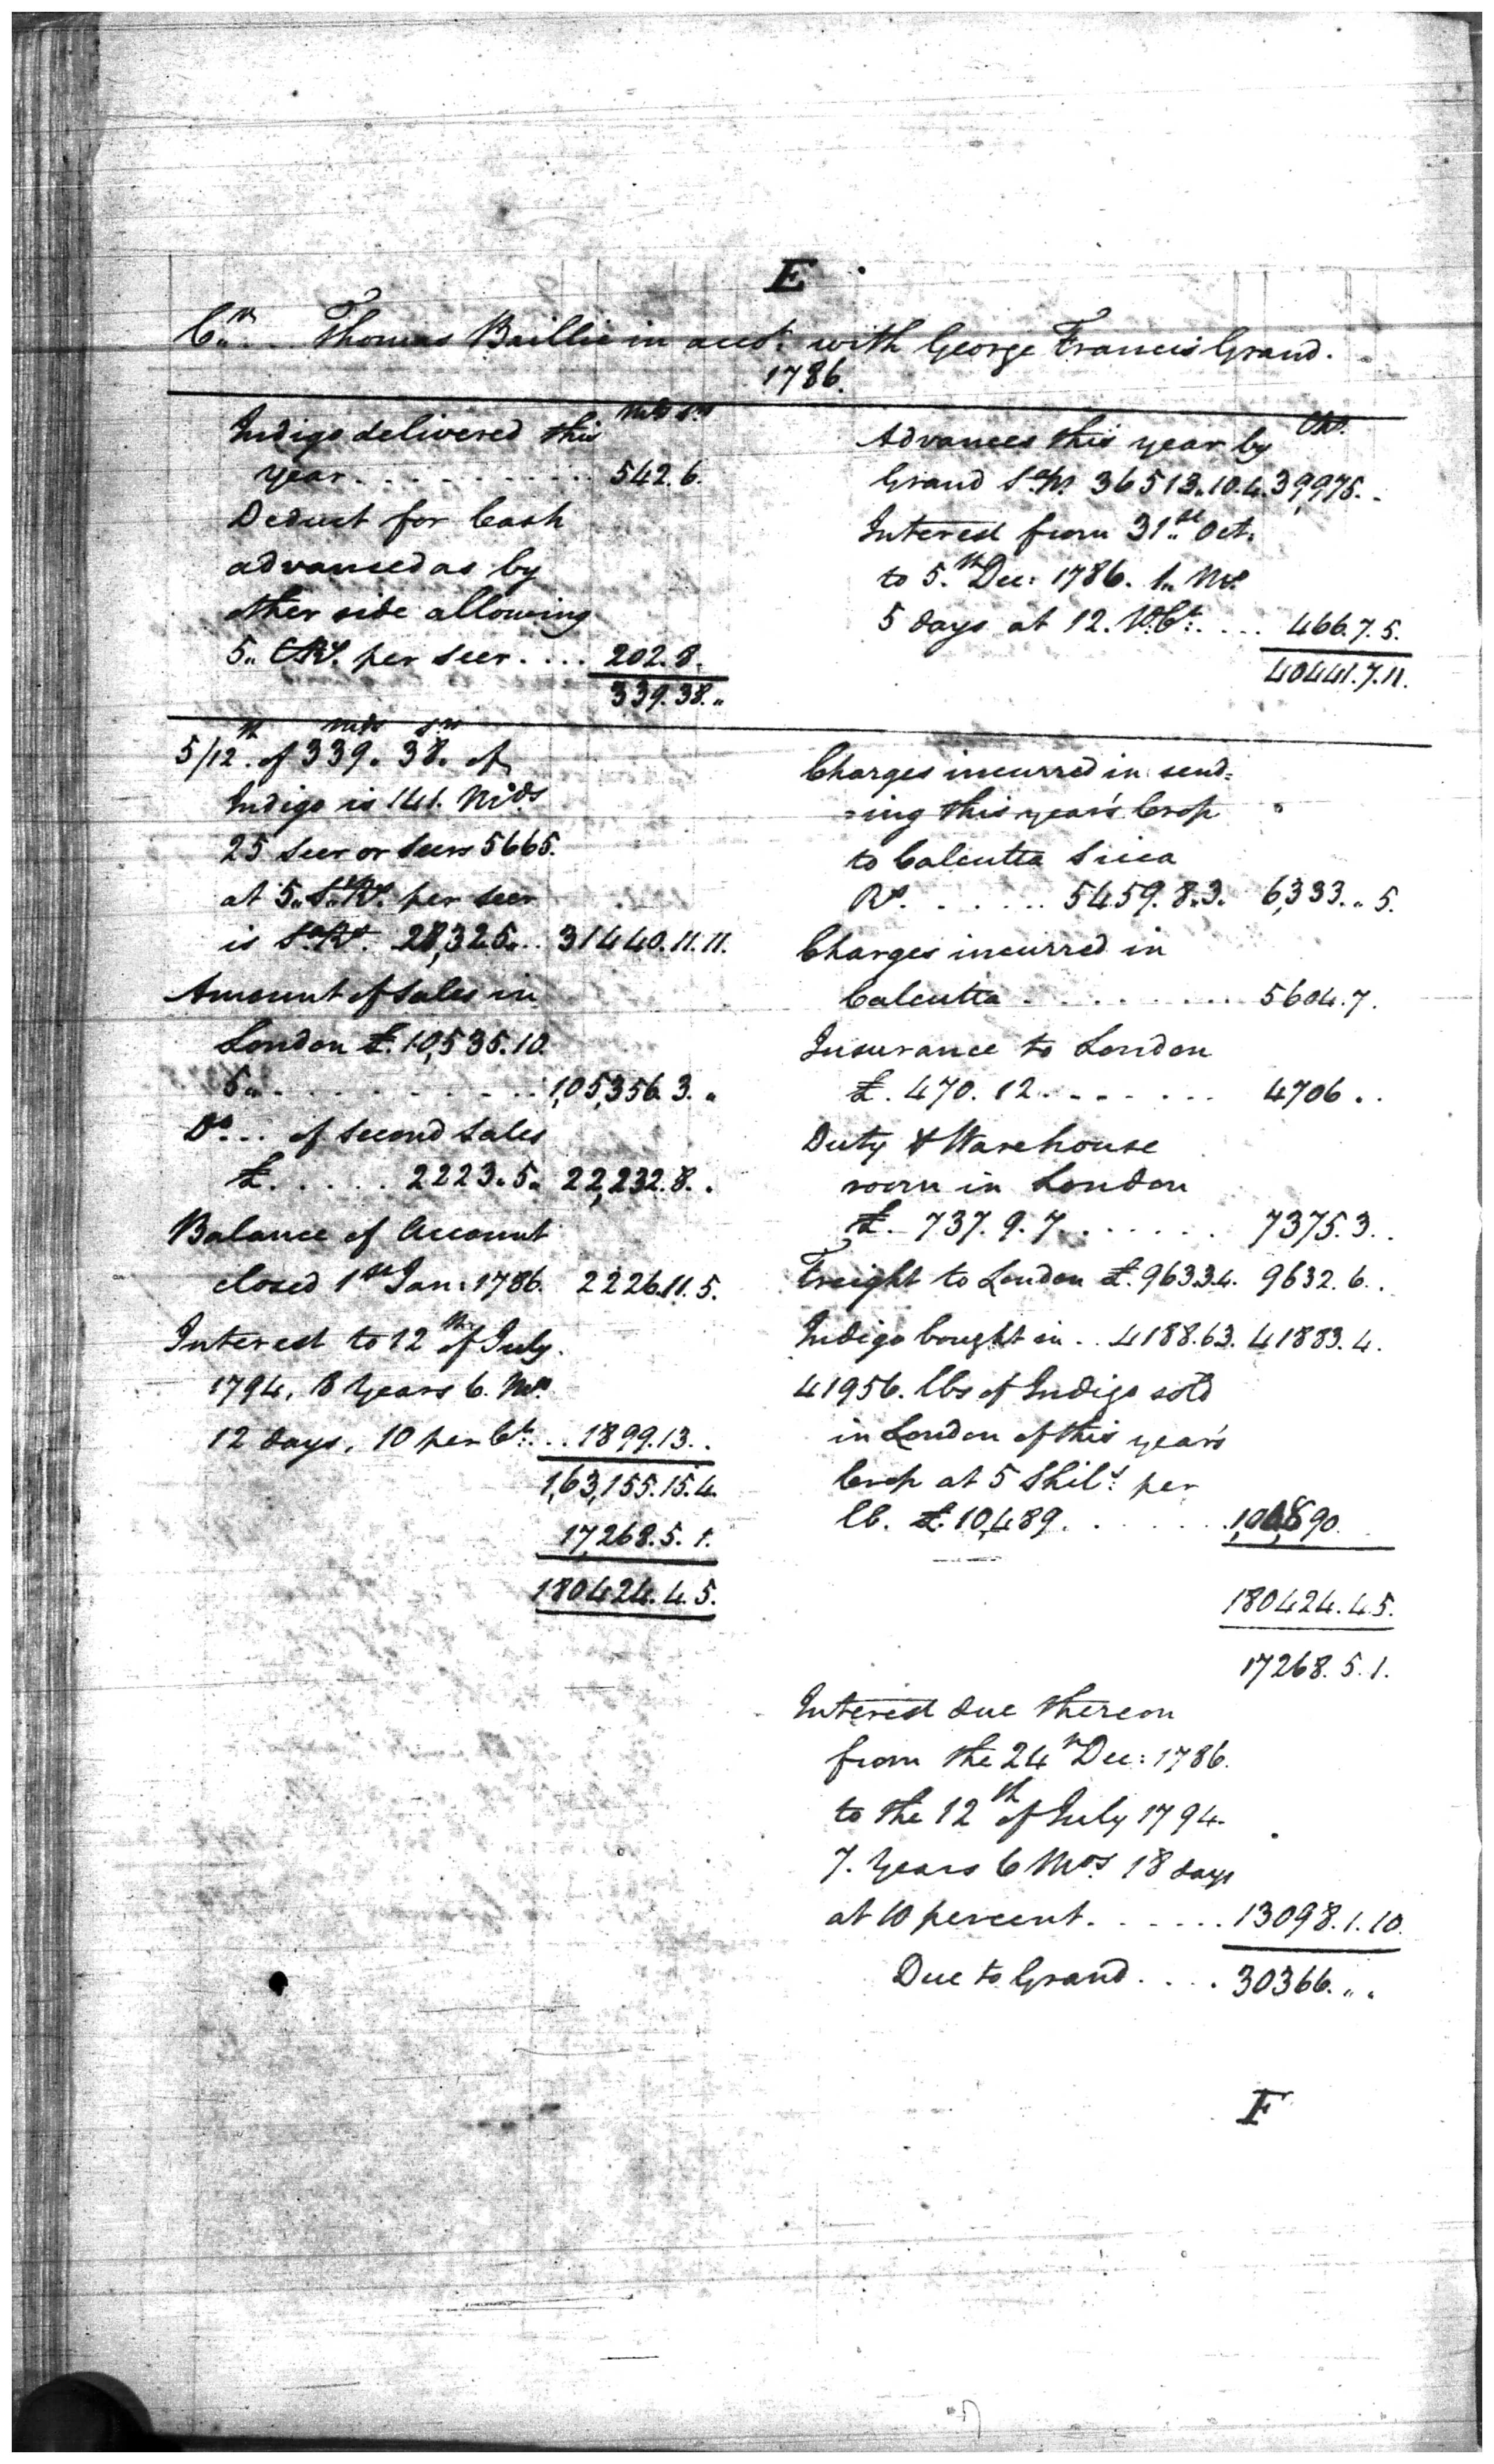 E
Cr. Thomas Baillie in acct. with George Francis Grand.
1786.
Mds Srs
Indigo delivered this
year . . . . . . . . . . 542.6.
Deduct for Cash
advanced as by
other side allowing
5,, CRs. per seer . . . . 202.8.
339.38.,,
CRs.
Advances this year by
Grand Sa. Rs. 36513.10.4. 39,975.
Interest from 31st. Oct.
to 5.th Dec: 1786. 1,, Mo.
5 days at 12. Pr. Ct: . . . . 466.7.5.
40441.7.11.
mds srs
5/12th. of 339. 38. of
Indigo is 141. Mds
25 seer or seers 5665.
at 5,, Sa. Rs. per seer
is Sa. Rs. 28,325,, . . 31440.11.11.
Amount of sales in
London £. 10,535.10.
5,, . . . . . . . . . 1,05,356.3.,,
Do. . . of second sales
£. . . . . 2223.5. 22,232.8. .
Balance of Account
closed 1st Jan: 1786. 2226.11.5.
Interest to 12th of July.
1794, 8 Years 6. Mos.
12 days, 10 per Ct: . . . 1899.13. .
1,63,155.15.4.
17,268.5.1.
180424.4.5.
Charges incurred in send=
=ing this year's Crop
to Calcutta Sicca
Rs. . . . . . 5459.8.3. 6,333.,,5.
Charges incurred in
Calcutta . . . . . . . . . 5604.7.
Insurance to London
£. 470.12 . . . . . . . 4706 . .
Duty & Warehouse
room in London
£. 737.9.7 . . . . . . 7375.3. .
Freight to London £. 963.3.4. 9632.6. .
Indigo bought in . . 4188.6.3. 41883.4.
41956. lbs of Indigo sold
in London of this year's
Crop at 5 Shils. per
lb. £. 10,489 . . . . . . 1,04,890.
180424.4.5.
17268.5.1.
Interest due thereon
from the 24th Dec: 1786.
to the 12th of July 1794.
7. Years 6 Mos 18 days
at 10 percent . . . . . . 13098.1.10.
Due to Grand . . . . 30366.,,.
F